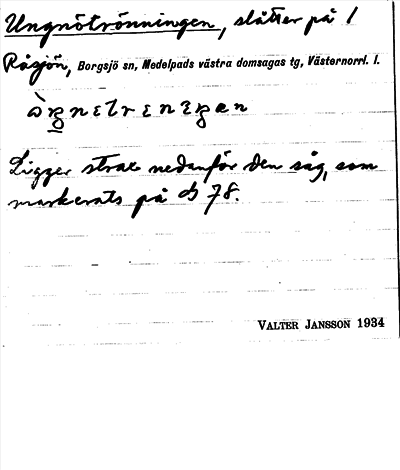 Ungnötrönningen, slåtter på 1
Råsjön, Borgsjö sn, Medelpads västra domsagas tg, Västernorrl. l.
Ligger strax nedanför den såg, som
markerats på d 78.
VALTER JANSSON 1934